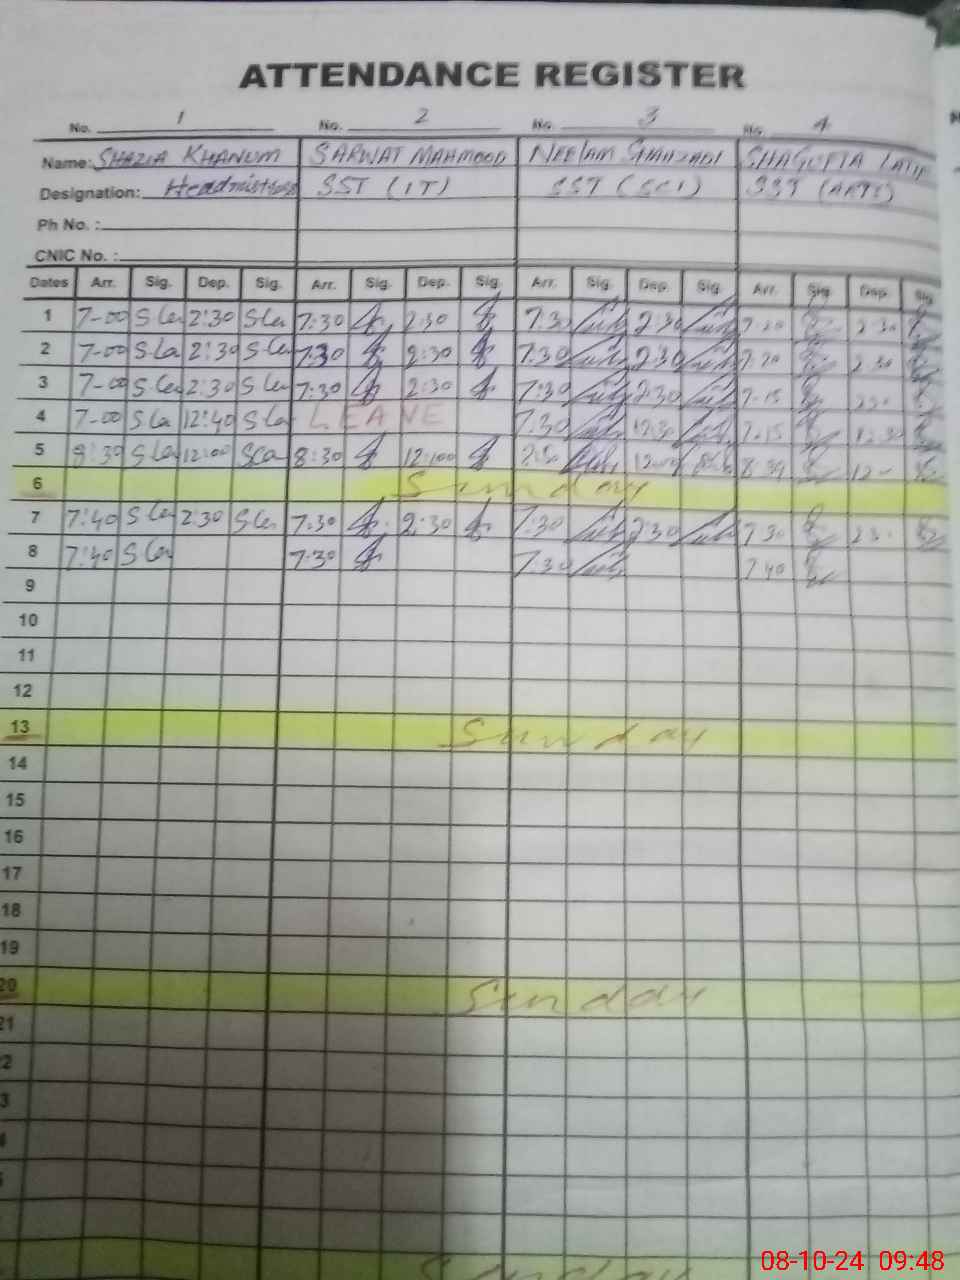 ATTENDANCE REGISTER
No. 1 No. 2 No. 3 No. 4
Name: SHAZIA KHANUM SARWAT MAHMOOD NEELAM SHAHZADI SHAGUFTA
Designation: Headmistress SST (IT) SST (SCI) SST (ARTS)
Ph No. :
CNIC No. :
Dates Arr. Sig. Dep. Sig. Arr. Sig. Dep. Sig. Arr. Sig. Dep. Sig. Arr. Sig. Dep. Sig.
1 7-00 2:30 7:30 2:30 7:30 2:30 2:30
2 7-00 2:30 7:30 2:30 7:30 2:30 2:30
3 7-00 2:30 7:30 2:30 7:30 2:30 7-15 2:30
4 7-00 12:40 LEAVE 7:30 12:30 7-15 12:30
5 8:30 12:00 8:30 12:00
6 Sunday
7 7:40 2:30 7:30 2:30 7:30 2:30 7:30
8 7:40 7:30 7:30 7:40
9
10
11
12
13 Sunday
14
15
16
17
18
19
20 Sunday
21
2
3
Sunday
08-10-24 09:48